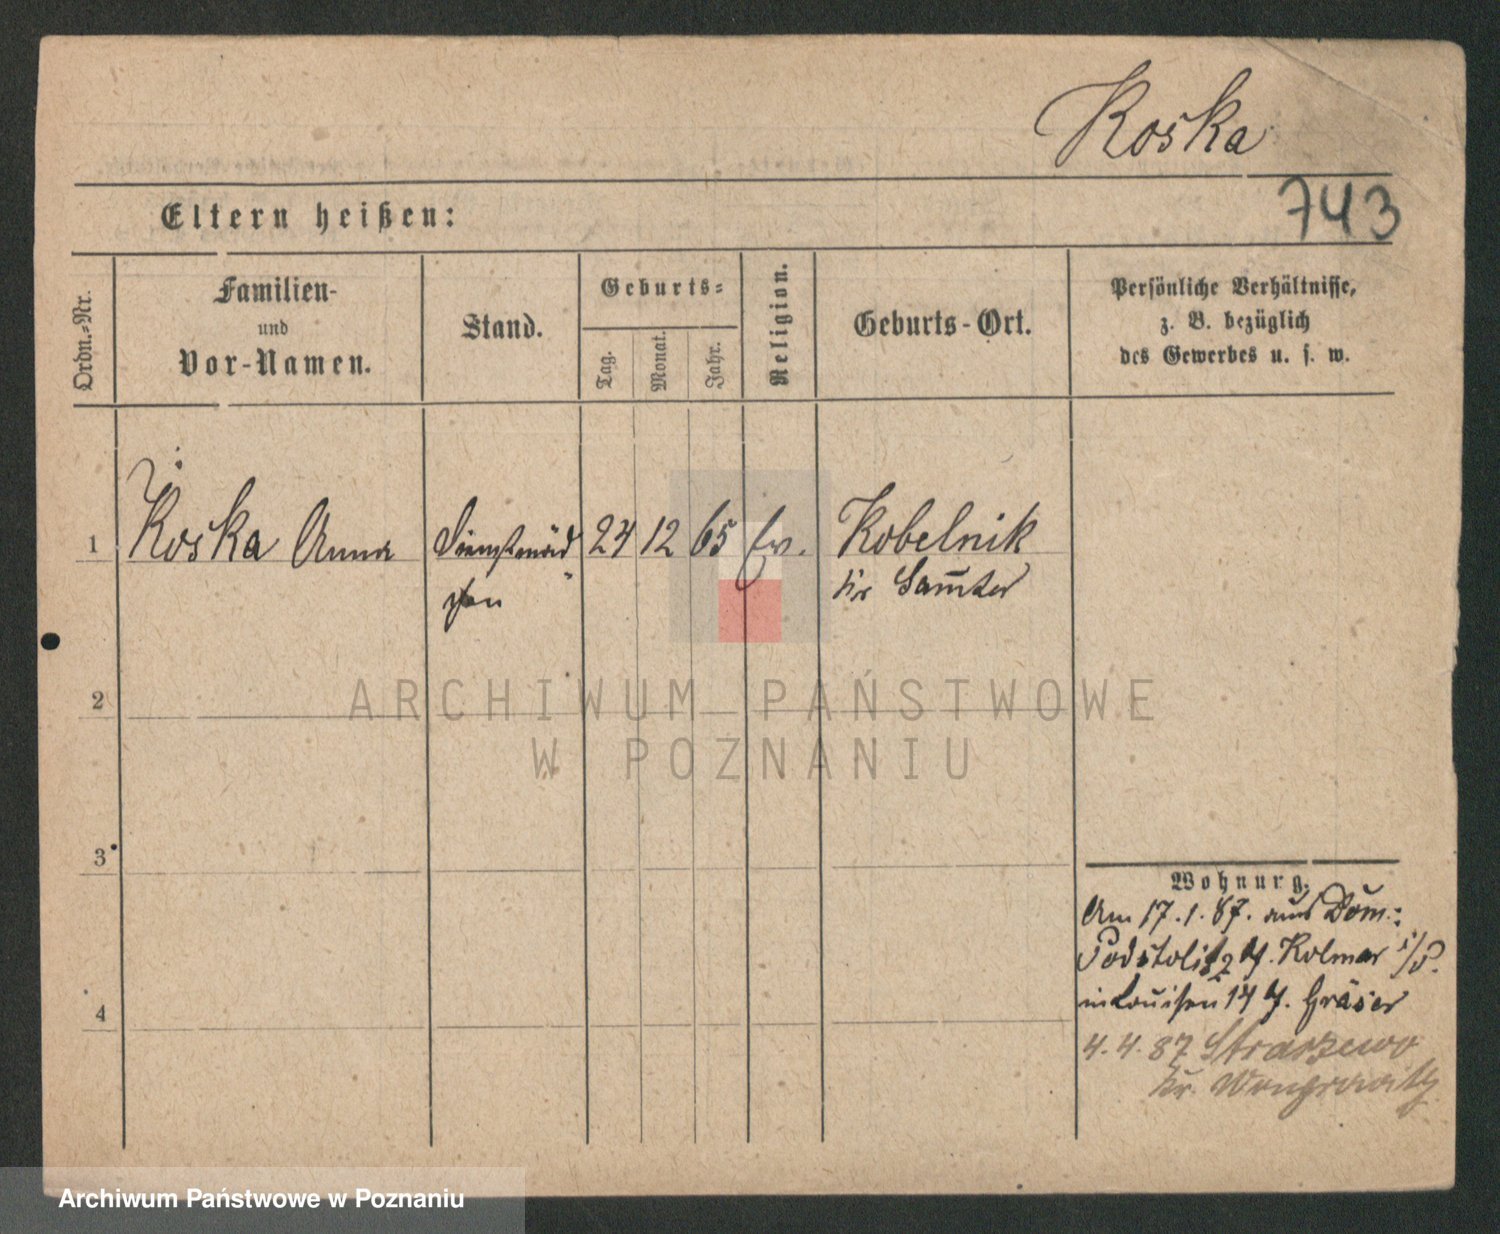 Koska
743
Eltern heißen:
Ordn.-Nr.
Familien-
und
Vor-Namen.
Stand.
Geburts-
Tag.
Monat.
Jahr.
Religion.
Geburts-Ort.
Persönliche Verhältnisse,
z. B. bezüglich
des Gewerbes u. s. w.
1 Koska Anna Dienstmäd 24 12 65 Ev. Kobelnik
chen Kr Samter
ARCHIWUM PAŃSTWOWE
W POZNANIU
2
3
4
Wohnung.
Am 17.1.87. aus Dom.:
Podstolitz b/. Kolmar i/P.
in Louisen 14 b/. Gräser
4.4.87 Straszewo
Kr. Wongrowitz
Archiwum Państwowe w Poznaniu